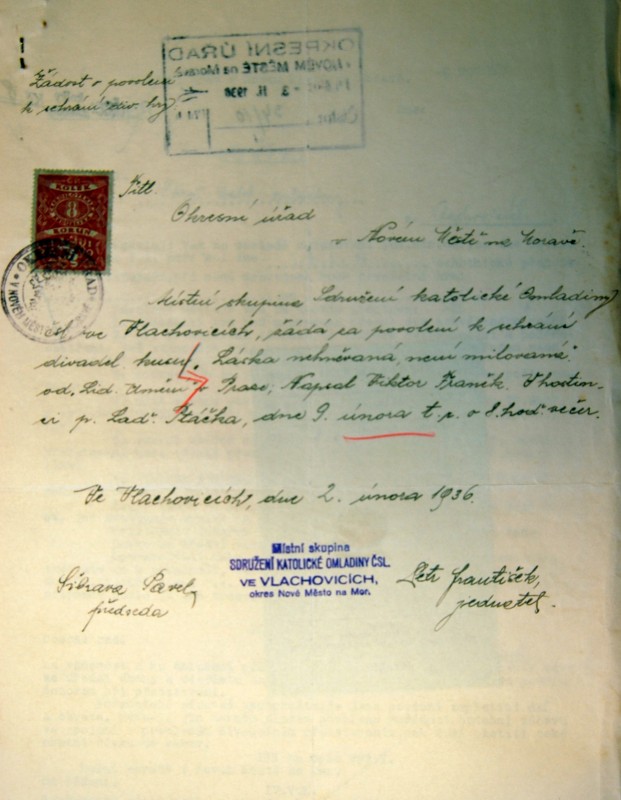 Žádost o povolení
k sehrání div. hry
OKRESNÍ ÚŘAD
NOVÉM MĚSTĚ na Moravě
3. II. 1936
KOLEK
8
KORUN
Titl.
Okresní úřad
v Novém Městě na Moravě.
Místní skupina Sdružení katolické Omladiny
čsl. ve Vlachovicích, žádá za povolení k sehrání
divadel. kusu, "Láska nehněvaná, není milovaná"
od, Lid. Umění v Praze, Napsal Viktor Braněk. V hostin-
ci p. Lad. Ptáčka, dne 9. února t. r. v 8. hod. večer.
Ve Vlachovicích, dne 2. února 1936.
Místní skupina
SDRUŽENÍ KATOLICKÉ OMLADINY ČSL.
VE VLACHOVICÍCH,
okres Nové Město na Mor.
Pavel
předseda
Petr František,
jednatel.